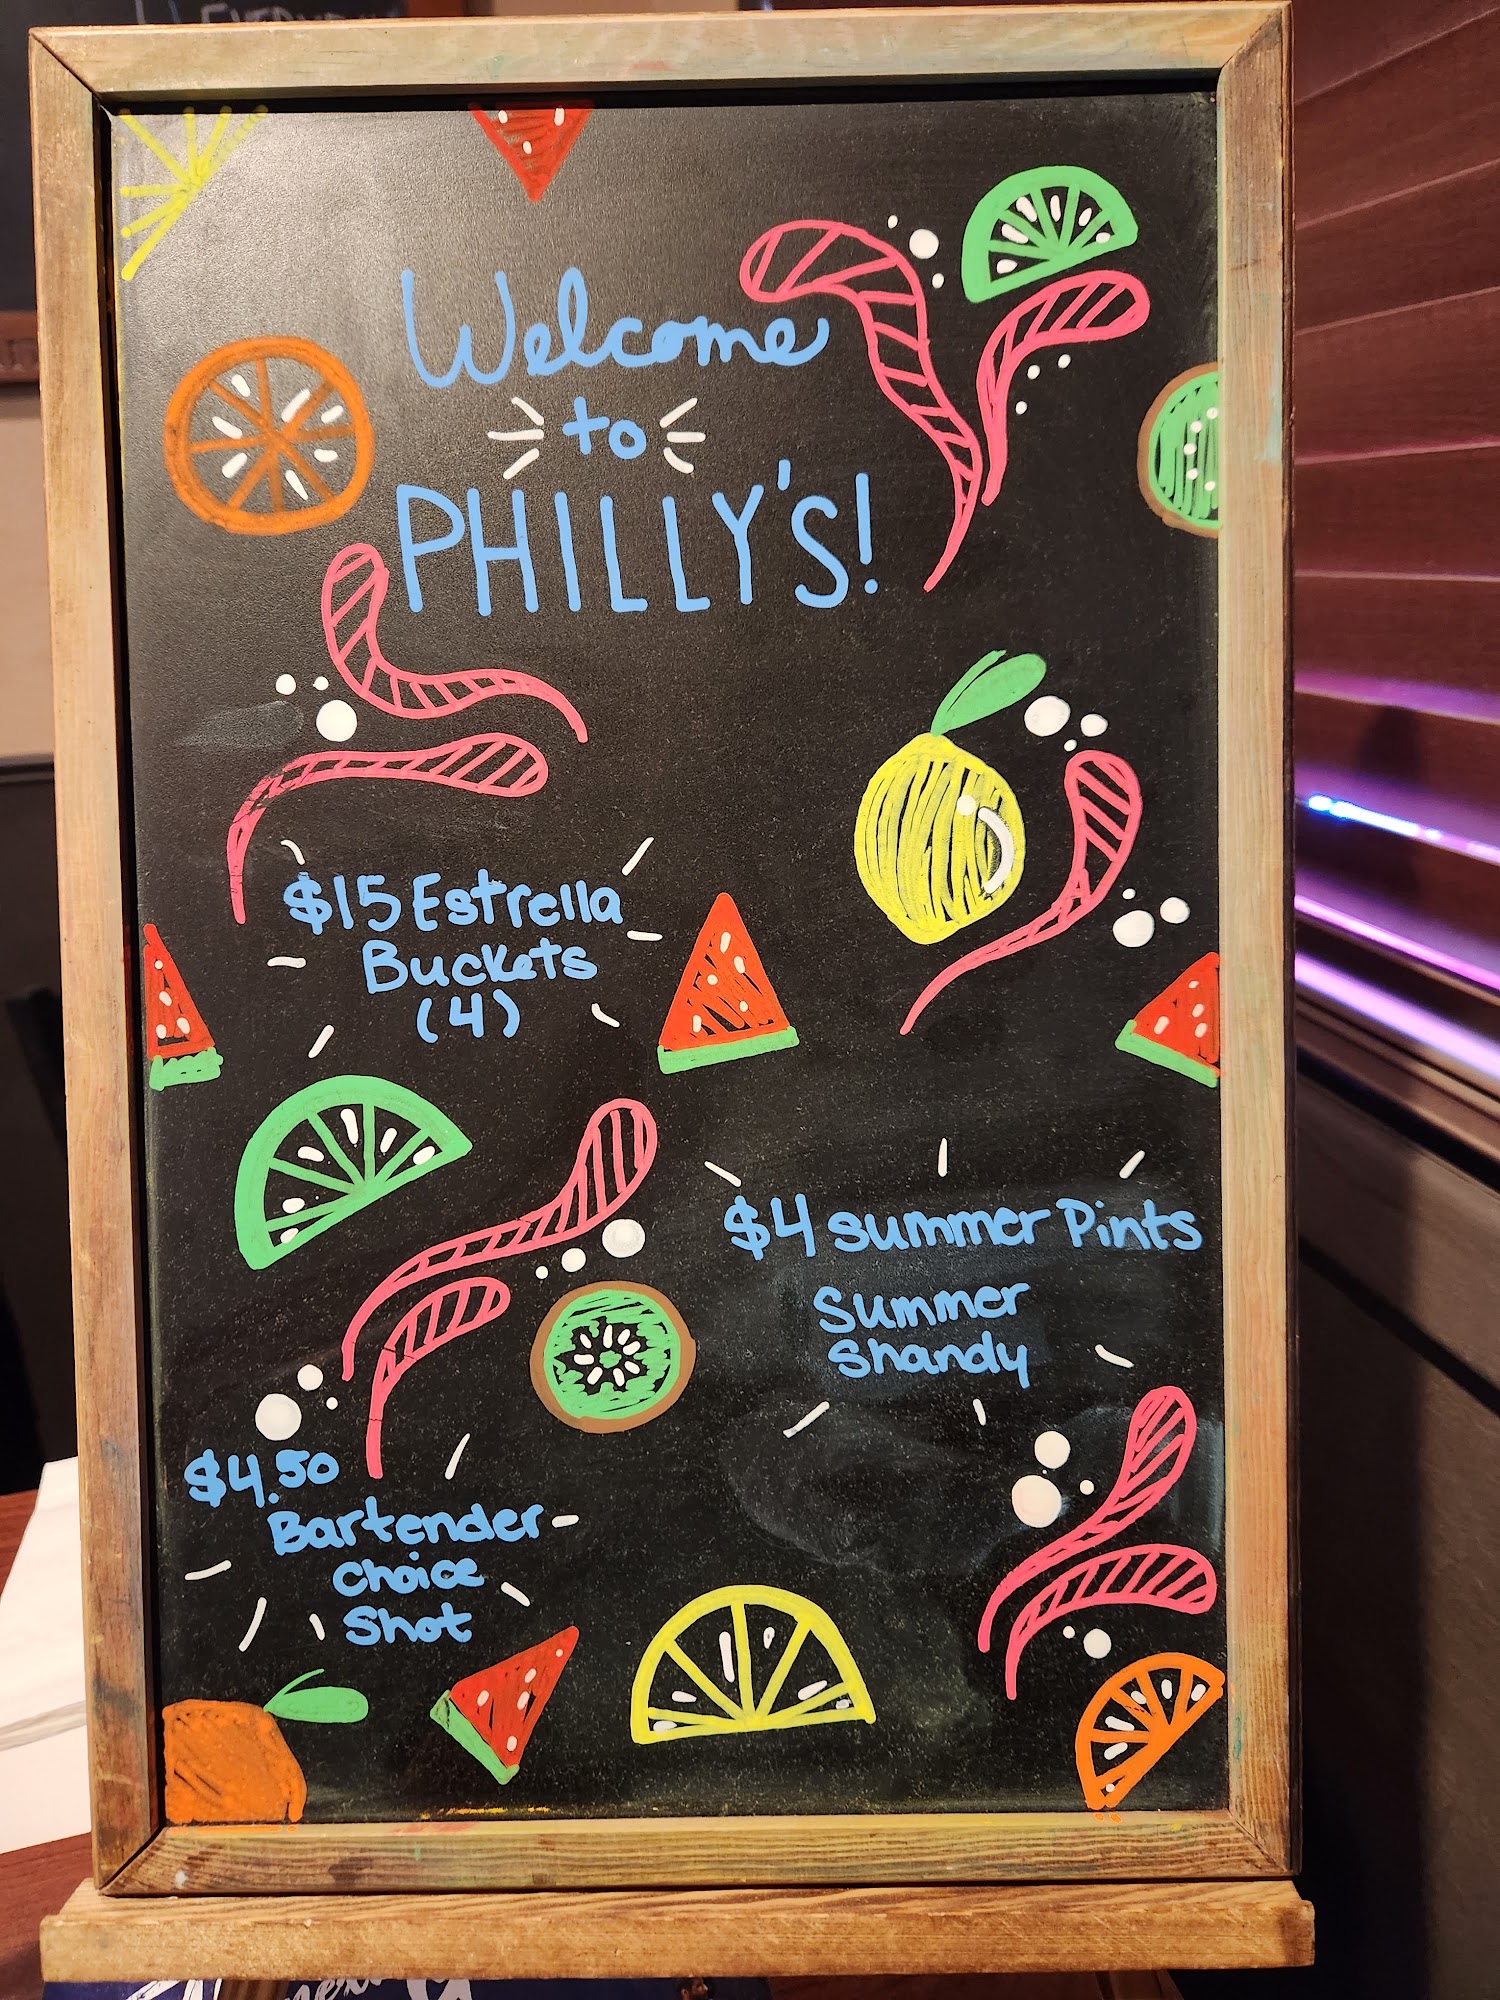 Welcome
to
PHILLY'S!
$15 Estrella
Buckets
(4)
$4 Summer Pints
Summer
Shandy
$4.50
Bartender
Choice
Shot